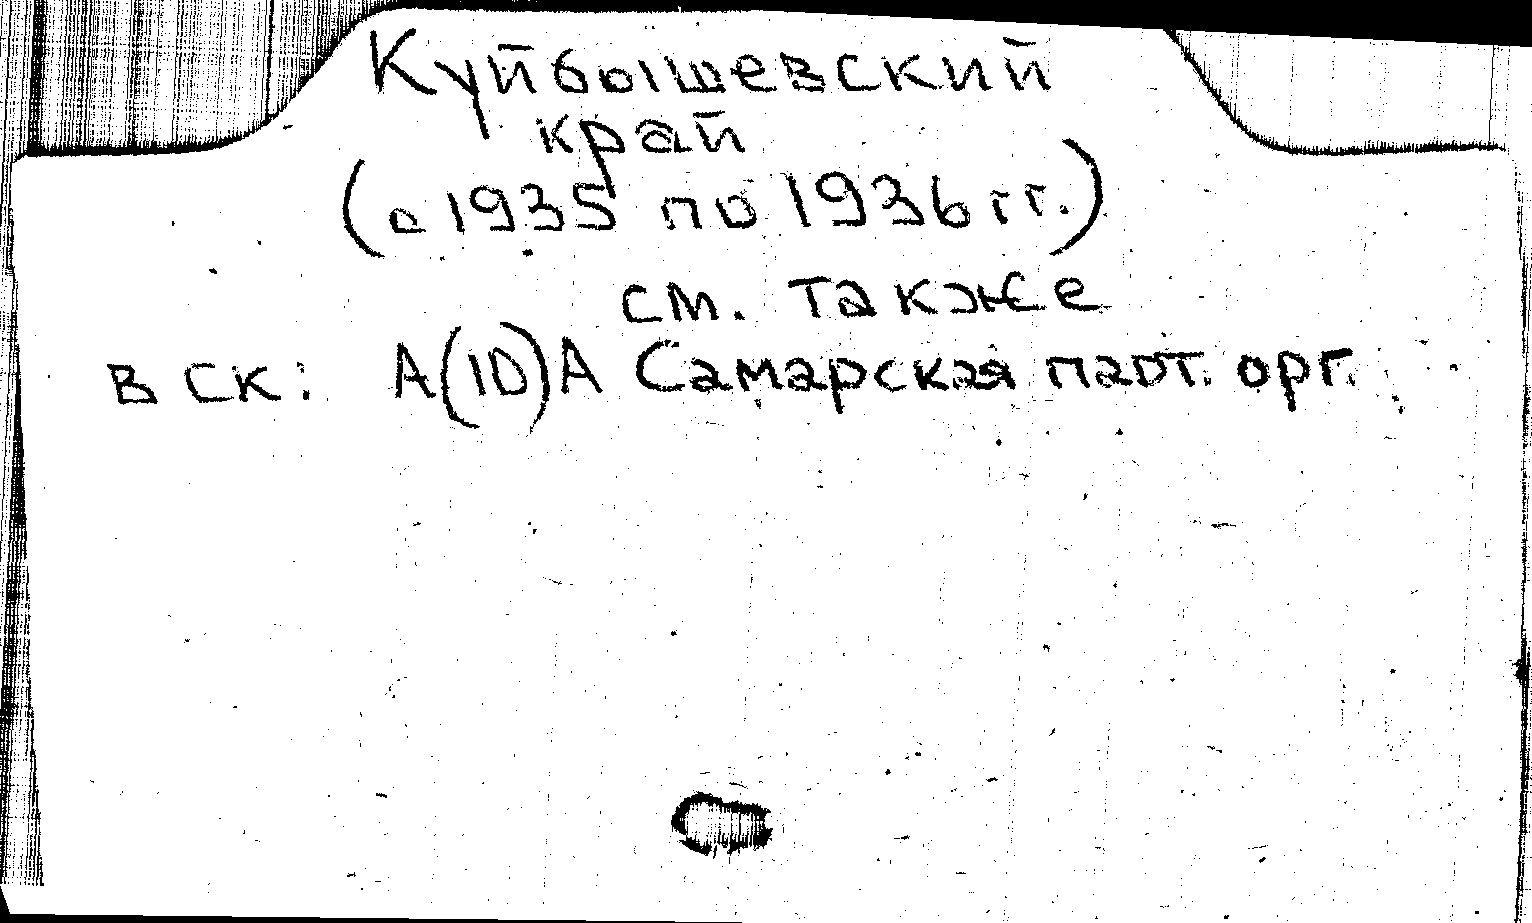 Куйбышевский
край
(с 1935 по 1936 гг.)
см. также
в СК: А(10)А Самарская парт. орг.